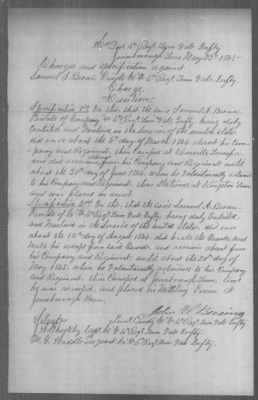 Hd Qrs 4th Regt Tenn Vols Infty
Jonesborough Tenn May 23d 1865
Charges and specification against
Samuel A. Brown Private Co D 4th Regt Tenn Vols Infty
Charge
Desertion
Specification 1st In this, that the said Samuel A. Brown
Private of Company D 4th Regt Tenn Vols Infty, being duly
Enlisted and Mustered in the Service of the United States
did on or about the day of March 1864 desert his Com-
pany and Regiment then Camped at Tennessee
and did remain absent from his Company and Regiment until
about the 20th day of June 1864 when he voluntarily returned
to his Company and Regiment, then Stationed at Kingston Tenn
and was placed in arrest
Specification 2nd In this that the said Samuel A. Brown
Private of Co D 4th Regt Tenn Vols Infty being duly Enlisted
and Mustered in the Service of the United States did on or
about the 13th day of August 1864 break the Guard and
make his escape from said Guard and remain absent from
his Company and Regiment until about the 20th day of
May 1865, when he voluntarily returned to his Company
and Regiment, then Camped at Jonesborough Tenn where
he was arrested and placed in Military Prison at
Jonesborough Tenn
John W.
Lieut Comdg Co D 4th Regt Tenn Vols Infty
Witnesses
Capt Co D 4th Regt Tenn Vols Infty
M. G. Sergeant Co D 4th Regt Tenn Vols Infty